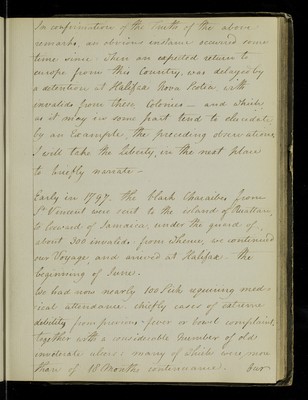 In confirmation of the Truth of the above
remarks, an obvious instance occurred some
time since. When an expected return to
Europe from this Country, was delayed by
a detention at Halifax Nova Scotia, with
invalids from those Colonies — and which
as it may in some part tend to elucidate
by an Example, the preceding observations
I will take the liberty, in the next place
to briefly narrate —
Early in 1797. the black Charaibes from
St Vincent were sent to the island of Ruattan,
to leeward of Jamaica, under the guard of
about 300 invalids. from thence, we continued
our Voyage, and arrived at Halifax the
beginning of June.
We had now nearly 100 Sick requiring med-
ical attendance. chiefly cases of extreme
debility from previous fever or bowel complaint,
together with a considerable number of old
inveterate ulcers; many of which were more
than of 18 Months continuance.